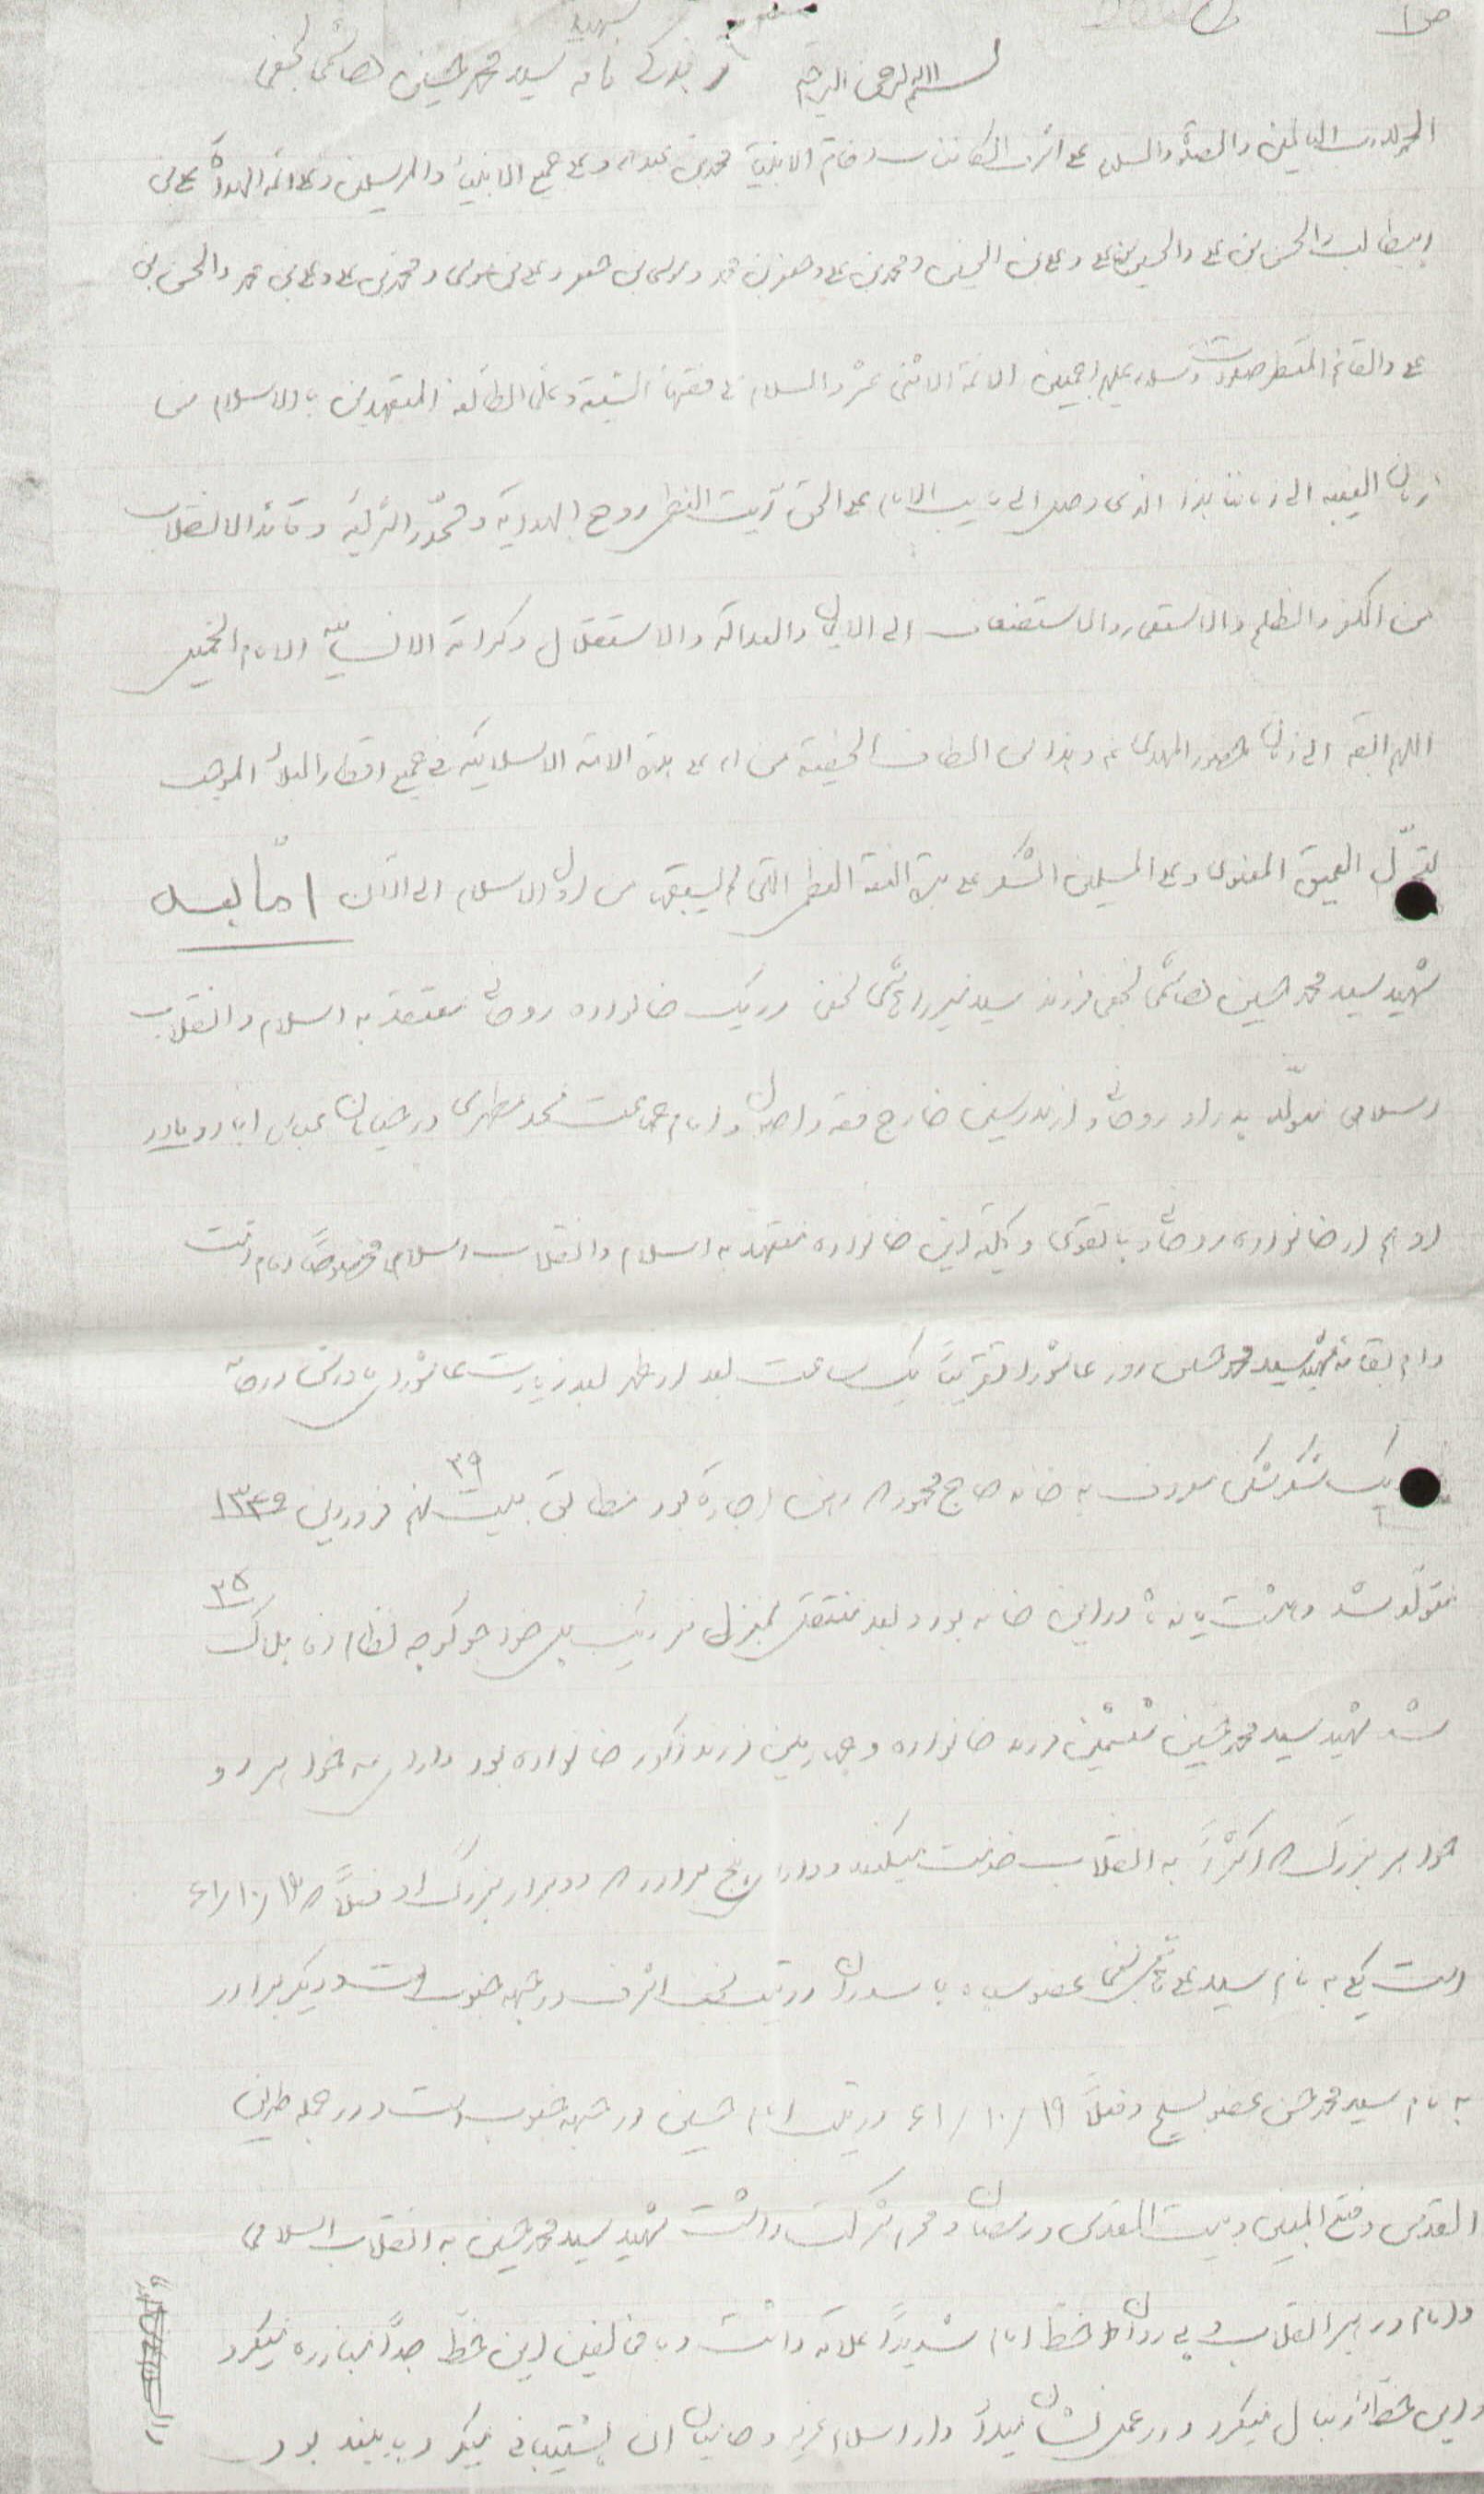 ص ۱
شهید
بسم الله الرحمن الرحیم زندگی نامه سید محمد حسین هاشمی نجفی
الحمدلله رب العالمین والصلوة والسلام علی اشرف الکائنات وخاتم الانبیاء محمد بن عبدالله وعلی جمیع الانبیاء والمرسلین وعلی ائمة الهداة علی بن
ابیطالب والحسن بن علی والحسین بن علی وعلی بن الحسین ومحمد بن علی وجعفر بن محمد وموسی بن جعفر وعلی بن موسی ومحمد بن علی وعلی بن محمد والحسن بن
علی والقائم المنتظر صلوات الله وسلامه علیهم اجمعین الائمة الاثنی عشر والسلام علی فقهاء الشیعة وعلی الطائفة المتعهدین بالاسلام من
زمان الغیبه الی زماننا هذا الذی وصل الی نایب الامام علی الحق آیت العظمی روح الهدایة و وقائد الانقلاب
من الکفر والظلم والاستعمار والاستضعاف الی الایمان والعدالة والاستقلال وکرامة الانسانیّة الامام الخمینی
اللهم ابقه الی زمان ظهور المهدی عج وهذا من الطاف الخفیة من الله علی هذه الامة الاسلامیة فی جمیع اقطار البلاد الموجب
لتحوّل العمیق المعنوی وعلی المسلمین الشکر علی هذه النعمة العظمی التی لم یسبق من اول الاسلام الی الآن امّا بعد
شهید سید محمد حسین هاشمی نجفی فرزند سید میرزا هاشمی نجفی در یک خانواده روحانی معتقد به اسلام و انقلاب
اسلامی متولّد پدر او روحانی و از مدرسین خارج فقه و اصول و امام جماعت مسجد مطهری در خیابان عباس آباد و مادر
او هم از خانواده روحانی و با تقوی و کلیّه این خانواده متعهد به اسلام و انقلاب اسلامی مخصوصاً امام امت
دام بقائه شهید سید محمد حسین روز عاشورا تقریباً یک ساعت بعد از ظهر بعد زیارت عاشورای مادرش در خانه
معروف به خانه حاج محمود که رهن اجاره بود مطابق بیست نهم فروردین ۱۳۴۹
۳۹
متولّد شد و هشت یا نه ماه در این خانه بود و بعد منتقل بمنزل نزدیک پل کوچه نظام زاده پلاک ۳۵
شد شهید سید محمد حسین ششمین فرزند خانواده و چهارمین فرزند ذکور خانواده بود دارای سه خواهر و دو
خواهر بزرگ که اکثراً به انقلاب خدمت میکنند و دارای پنج برادر که دو برادر بزرگ او فعلاً که ۱۹/۱۰/۶۱
است یکی به نام سید علی هاشمی نجفی عضو سپاه پاسداران در تیپ نجف اشرف در جبهه جنوب است و دیگر برادر
به نام سید محمد حسن عضو بسیج و فعلاً ۱۹/۱۰/۶۱ در تیپ امام حسین در جبهه جنوب است و در حمله طریق
القدس و فتح المبین و بیت المقدس و رمضان و محرم شرکت داشت شهید سید محمد حسین به انقلاب اسلامی
و امام و رهبر انقلاب و پیروان خطّ امام شدیداً علاقه داشت و با مخالفین این خطّ جداً مبارزه میکرد
و این خطّ را دنبال میکرد و در عمل نشان میداد و از اسلام عزیز و حامیان آن پشتیبانی میکرد پایبند بود